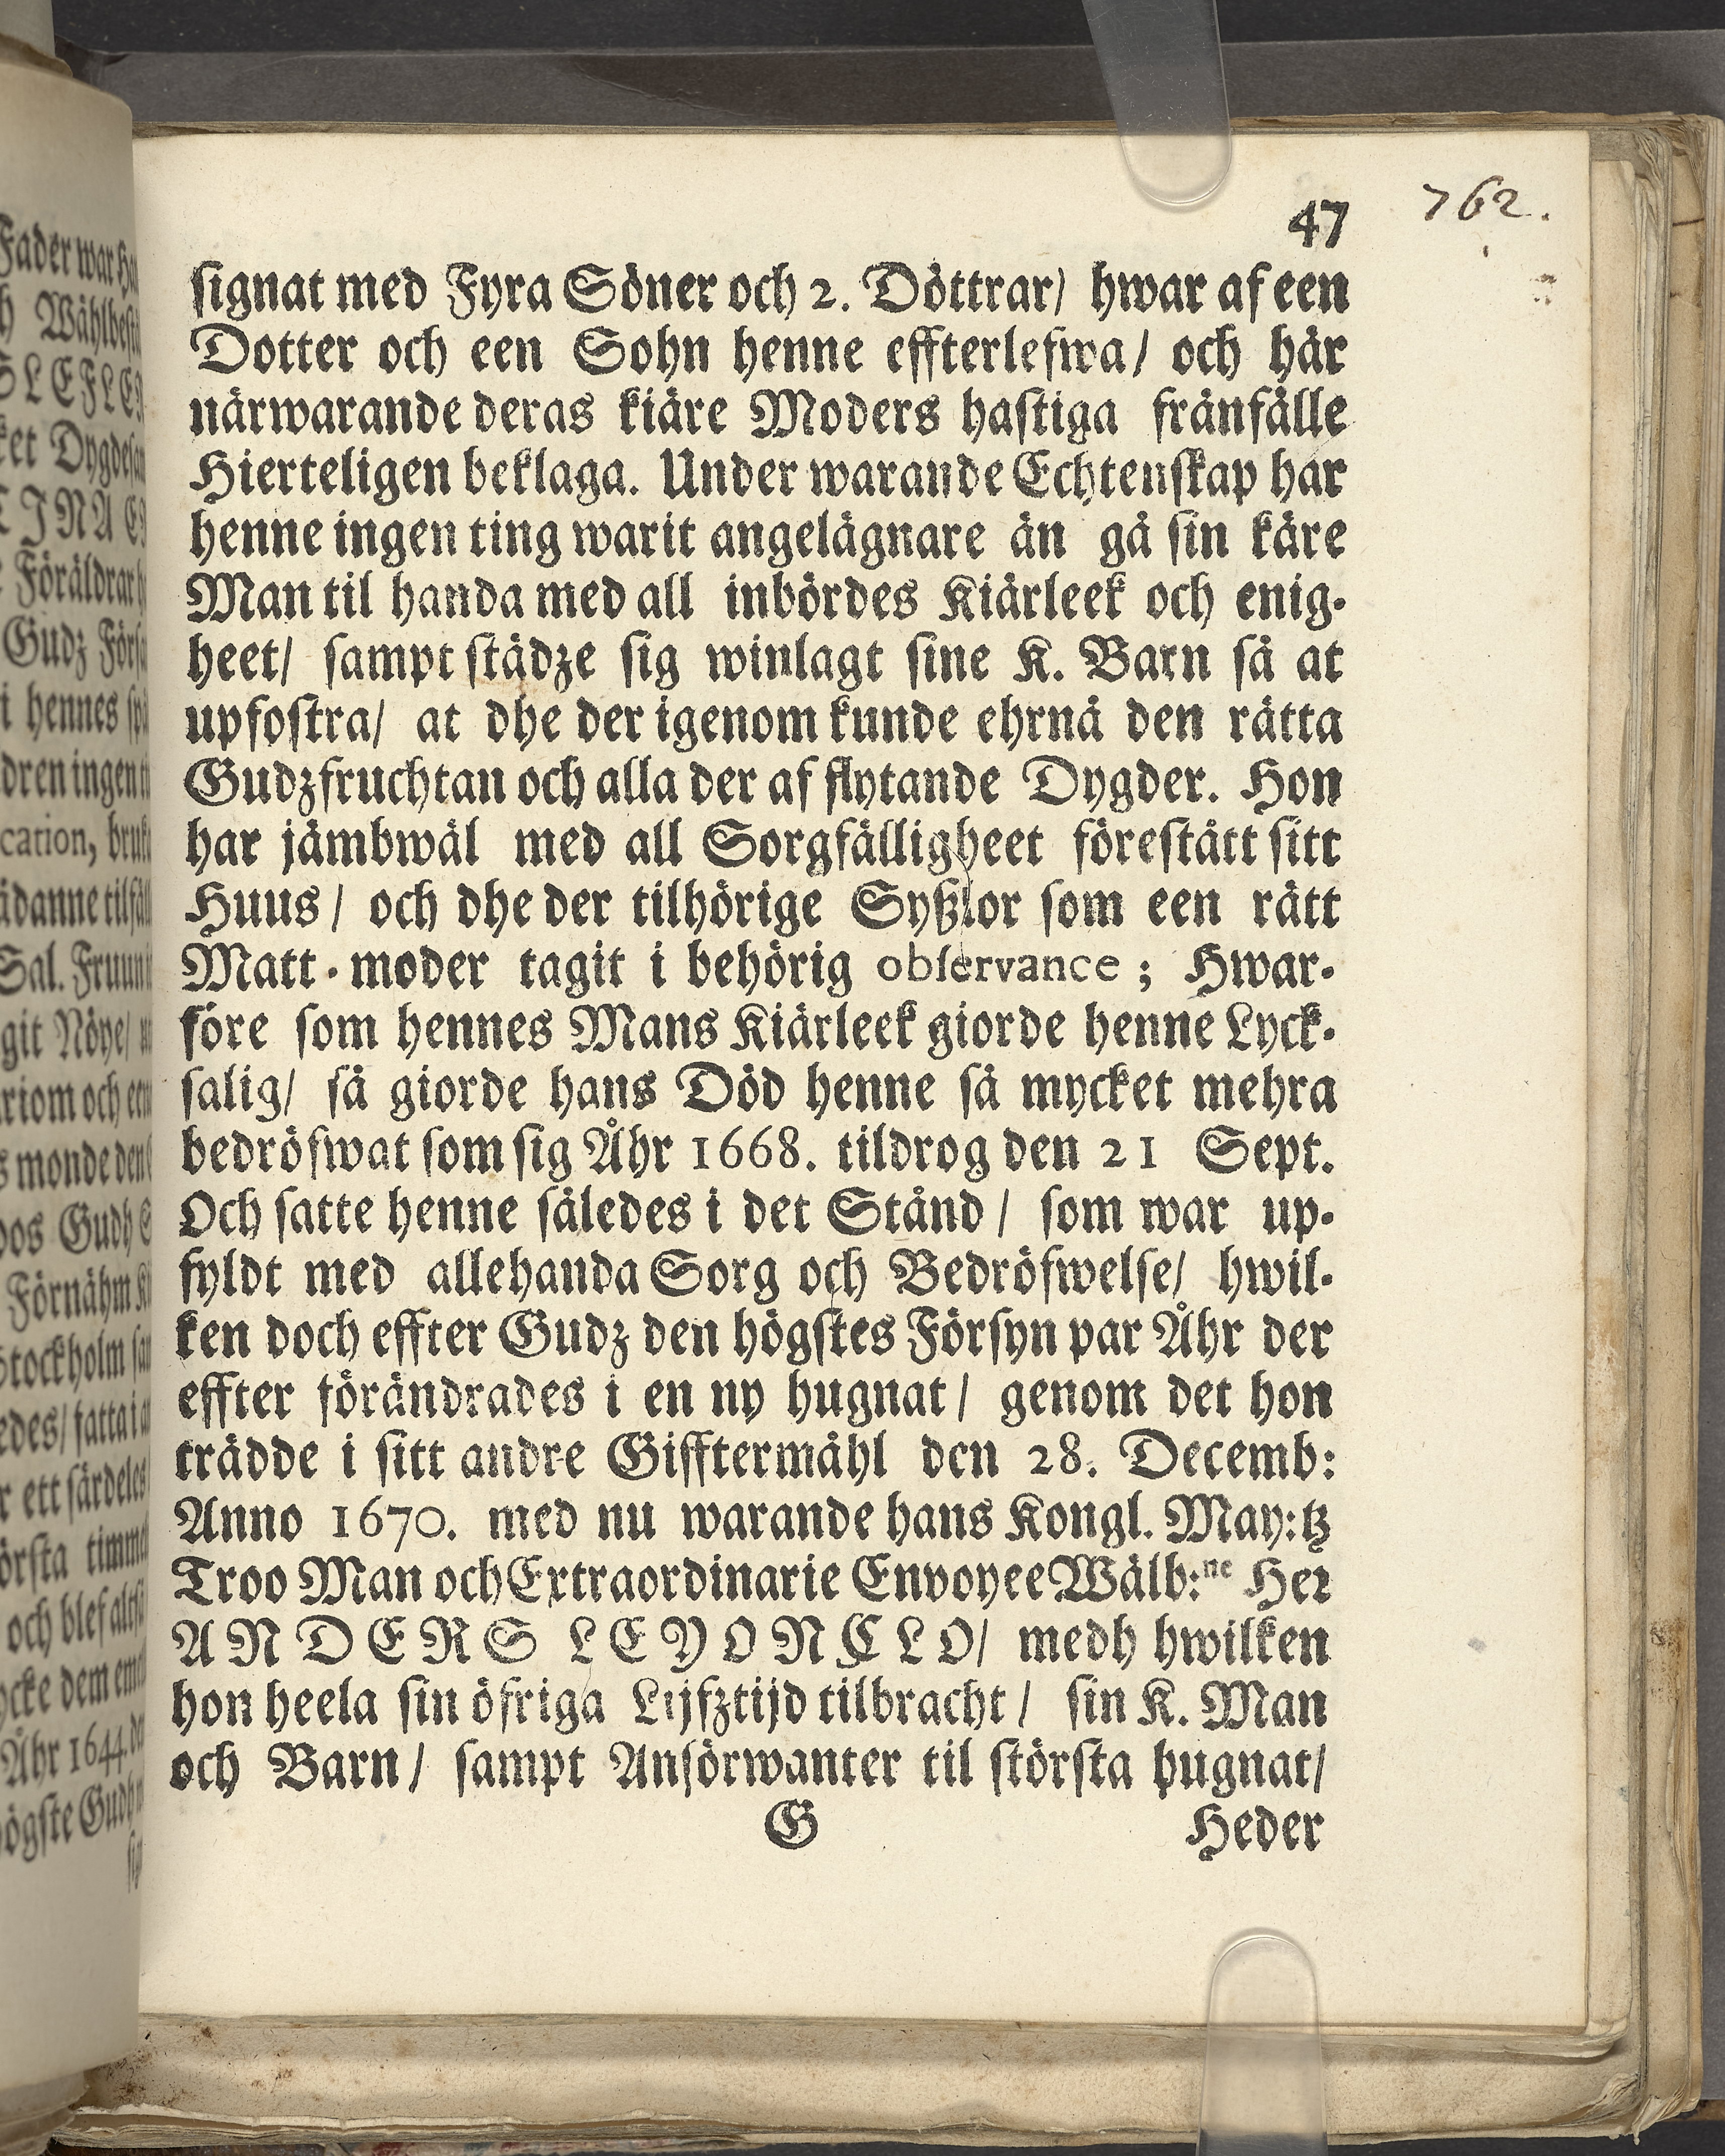 47
762.
signat med Fyra Söner och 2. Döttrar/ hwar af een
Dotter och een Sohn henne effterlefwa/ och här
närwarande deras kiäre Moders hastiga frånfälle
Hierteligen beklaga. Under warande Echtenskap har
henne ingen ting warit angelägnare än gå sin käre
Man til handa med all inbördes Kiärleek och enig-
heet/ sampt städze sig winlagt sine K. Barn så at
upfostra/ at dhe der igenom kunde ehrnå den rätta
Gudzfruchtan och alla der af flytande Dygder. Hon
har jämbwäl med all Sorgfälligheet förestått sitt
Huus/ och dhe der tilhörige Syßlor som een rätt
Matt-moder tagit i behörig observance; Hwar-
före som hennes Mans Kiärleek giorde henne Lyck-
salig/ så giorde hans Död henne så mycket mehra
bedröfwat som sig Åhr 1668. tildrog den 21 Sept.
Och satte henne således i det Stånd/ som war up-
fyldt med allehanda Sorg och Bedröfwelse/ hwil-
ken doch effter Gudz den högstes Försyn par Åhr der
effter förändrades i en ny hugnat/ genom det hon
trädde i sitt andre Gifftermåhl den 28. Decemb:
Anno 1670. med nu warande hans Kongl. May:tz
Troo Man och Extraordinarie Envoyee Wälb:ne Her
ANDERS LEYONCLO/ medh hwilken
hon heela sin öfriga Lijfztijd tilbracht/ sin K. Man
och Barn/ sampt Anförwanter til största hugnat/
G
Heder